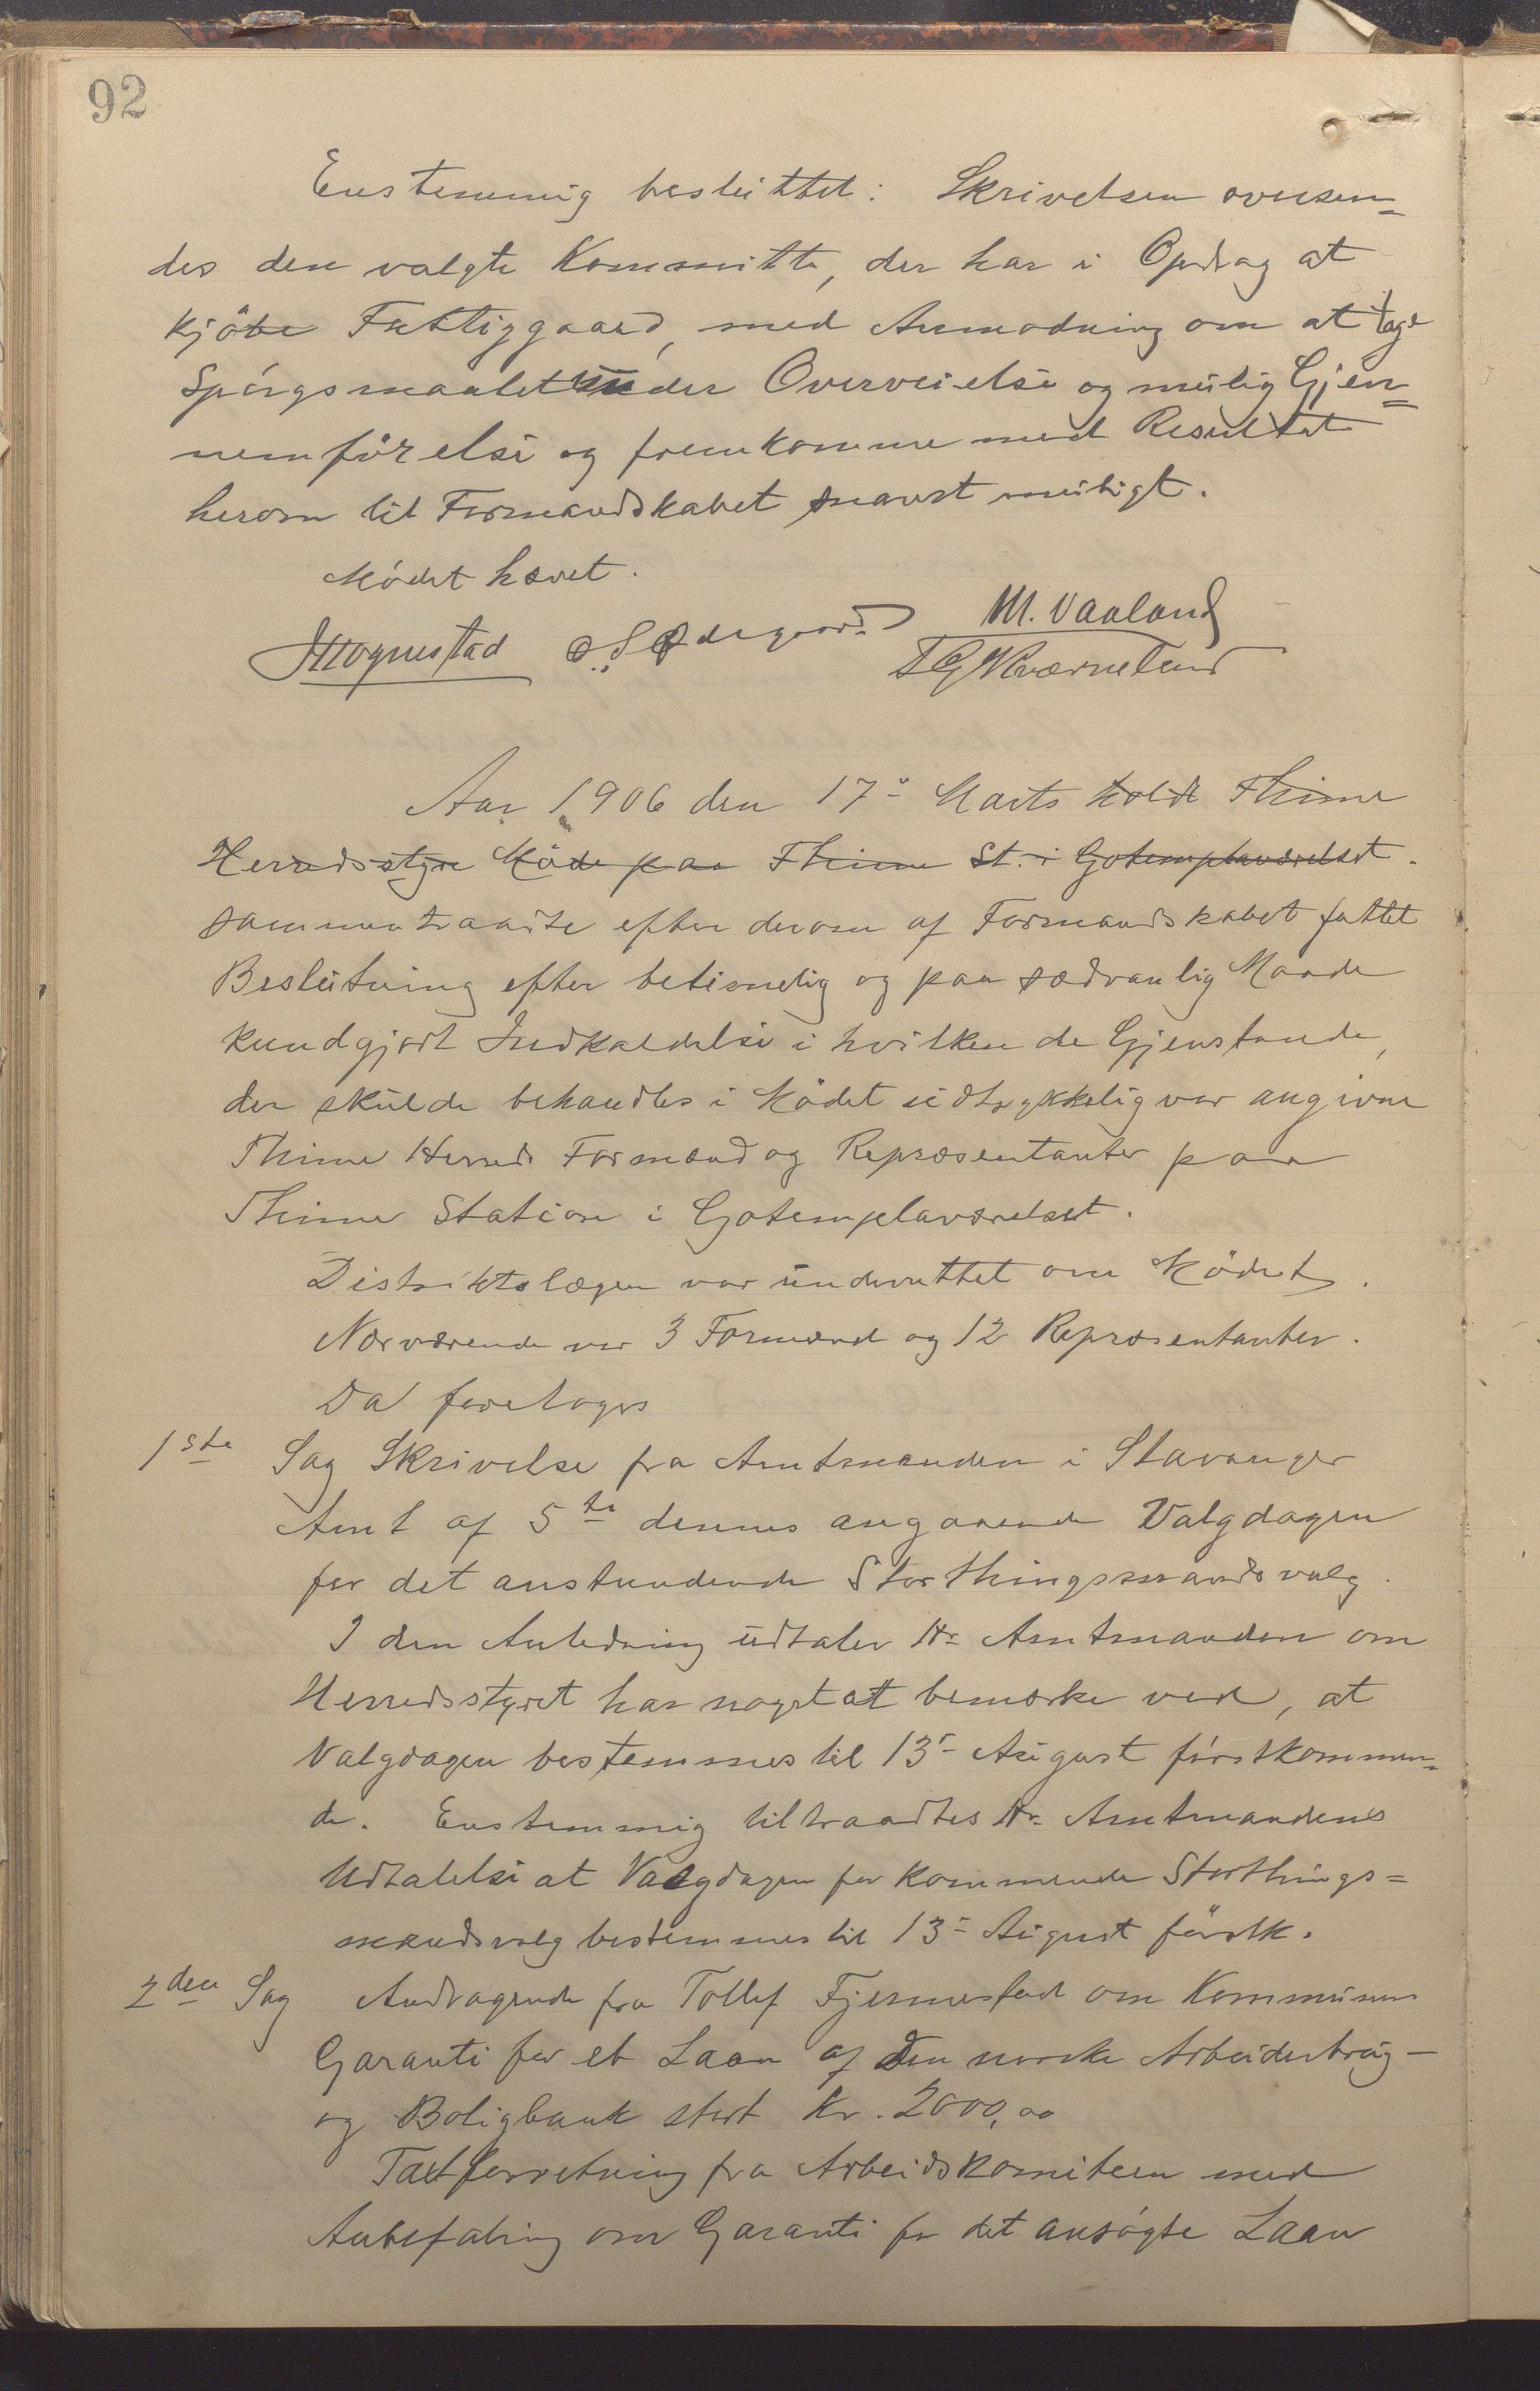 92
Enstemmig besluttet: Skrivelsen oversen=
des den valgte Kommitte, der har i Opdrag at
kjöbe Fattiggaard, med Anmodning om at tage
Spörgsmaalet under Overveielse og mulig Gjen=
nemförelse og fremkomme med Resultat
herom til Formandskabet snarest muligt.
Mödet hævet.
M. Vaaland
Hognestad O. S. Ødegaard
T G Kværneland
Aar 1906 den 17de Marts holdt Thime
Herredsstyre Möde paa Thime St. i Gotemplaværelset.
sammentraadte efter derom af Formandskabet fattet
Beslutning efter betimelig og paa sædvanlig Maade
kundgjort Indkaldelse i hvilken de Gjenstande,
der skulde behandles i Mödet udtrykkelig var angivne
Thime Herreds Formænd og Repræsentanter paa
Thime Station i Gotemplaværelset.
Distriktslægen var underrettet om Mödet.
Nærværende var 3 Formænd og 12 Repræsentanter.
Da foretoges
1ste Sag Skrivelse fra Amtmanden i Stavanger
Amt af 5te dennes angaaende Valgdagen
for det anstundende Storthingsmandsvalg.
I den Anledning udtaler Hr. Amtmanden om
Herredsstyret har noget at bemærke ved, at
Valgdagen bestemmes til 13de August förstkommen=
de. Enstemmig tiltraadtes Hr. Amtmandens
Udtalelse at Valgdagen for kommende Storthings=
mandsvalg bestemmes til 13de August förstk.
2den Sag Andragende fra Tollef Fjermestad om Kommunens
Garanti for et Laan af Den norske Arbeiderbrug-
og Boligbank stort Kr. 2000,00
Taxtforretning fra Arbeidskomiteen med
Anbefaling om Garanti for det ansögte Laan